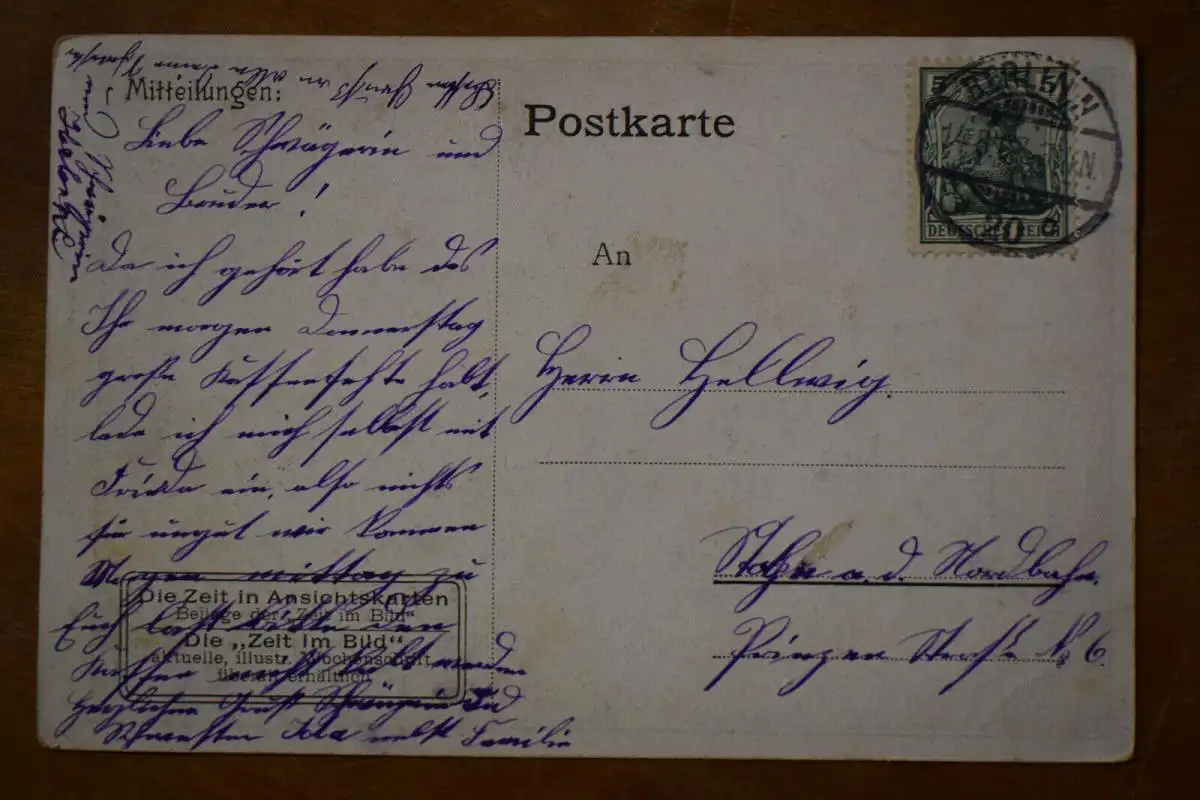 Mitteilungen:
Liebe Schwägerin und
Bruder!
Da ich gehört habe das
Ihr morgen Donnerstag
große Kaffeeschlacht habt,
lade ich mich selbst mit
Frieda ein, also nichts
für ungut wir kommen
Morgen mittag zu
Euch laßt bitte den
Kaffee nicht kalt werden
Herzlichen Gruß Schwägerin und
Schwester Ida nebst Familie
Die Zeit in Ansichtskarten
Beilage der „Zeit im Bild"
Die „Zeit im Bild"
aktuelle, illustr. Wochenschrift
überall erhältlich
Postkarte
5
DEUTSCHES REICH
BERLIN, N
20
An
Herrn Hellwig.
a. d. Nordbahn.
Prinzen Straße No 6.